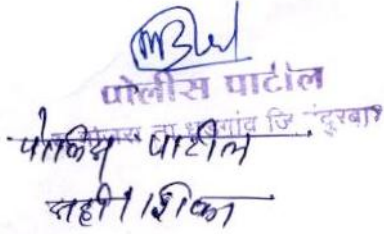 पोलीस पाटील
ता धडगांव जि नंदुरबार
पोलिस पाटील
सही / शिक्का